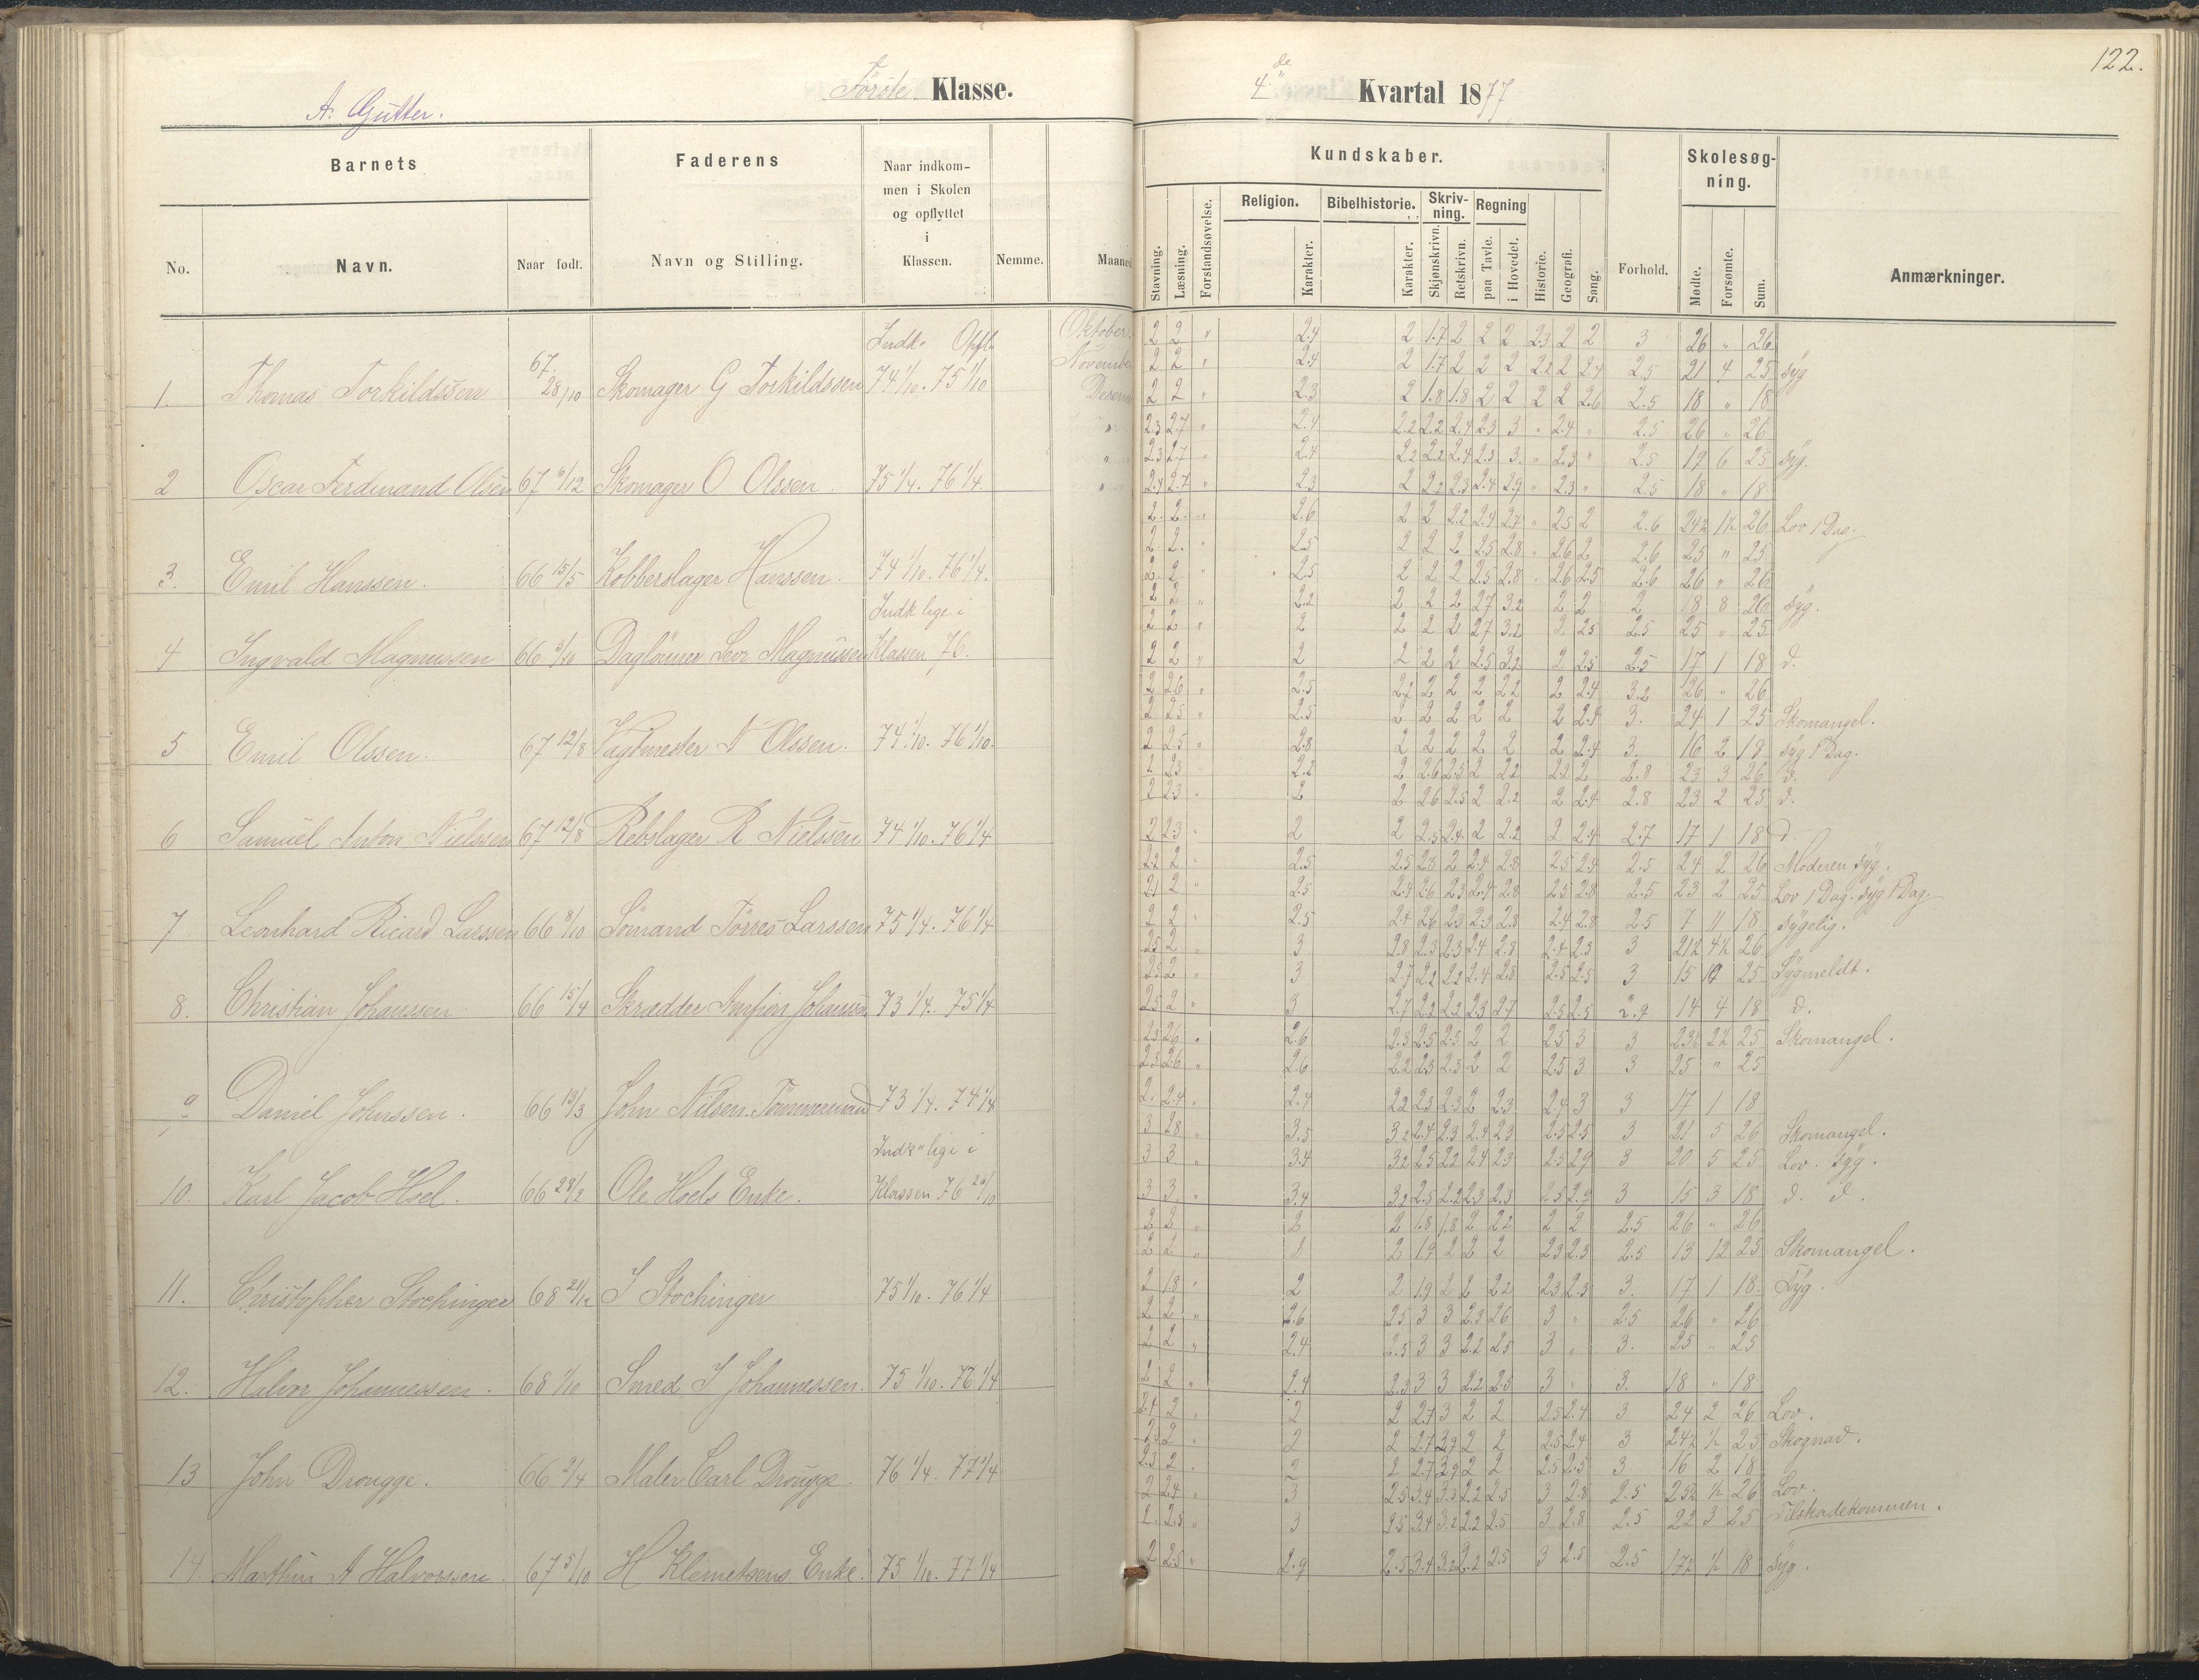 122.
A. Gutter.
Første Klasse.
4de Kvartal 1877
Barnets
Faderens
Naar indkom-
men i Skolen
og opflyttet
i
Klassen.
Kundskaber.
Skolesøg-
ning.
No.
Navn.
Naar født.
Navn og Stilling.
Nemme.
Maaned
Stavning.
Læsning.
Forstandsøvelse.
Religion.
Karakter.
Bibelhistorie.
Karakter.
Skriv-
ning.
Skjønskrivn.
Retskrivn.
Regning
paa Tavle.
i Hovedet.
Historie.
Geografi.
Sang.
Forhold.
Mødte.
Forsømte.
Sum.
Anmærkninger.
Indk. Opfl.
Oktober. 2 2 " 2.4 2 1.7 2 2 2 2.3 2 2 3 26 " 26
November 2 2 " 2.4 2 1.7 2 2 2 2.2 2 2.4 2.5 21 4 25 syg
1. Thomas Torkildssen 67. 28/10 Skomager G Torkildssen 74 1/10. 75 1/10 2 2 " 2.3 2 1.8 1.8 2 2 2 2 2.6 2.5 18 " 18
" 2.3 2.7 " 2.4 2.2 2.2 2.4 2.3 3 " 2.4 " 2.5 26 " 26
" 2.3 2.7 " 2.4 2.2 2.2 2.4 2.3 3. " 2.3 " 2.5 19 6 25 syg.
2 Oscar Ferdinand Olsen 67 6/12 Skomager O Olssen 75 1/4. 76 1/4. " 2.4 2.7 " 2.3 2 2.2 2.3 2.4 2.9 " 2.3 " 2.5 18 " 18
2. 2. " 2.6 2 2 2.2 2.4 2.7 " 2.5 2 2.6 24½ 1½ 26 Lov 1 Dag.
2. 2. " 2.5 2 2 2 2.5 2.8 " 2.6 2 2.6 25 " 25
3. Emil Hanssen. 66 15/5 Kobberslager Hanssen. 74 1/10. 76 1/4. 2. 2 " 2.5 2 2 2 2.5 2.8 " 2.6 2.5 2.6 26 " 26
Indk lige i
2 2 " 2.2 2 2 2 2.7 3.2 2 2 2 18 8 26 syg.
2 2 " 2 2 2 2 2.7 3.2 2 2.5 2.5 25 " 25
4 Ingvald Magnussen 66 3/10 Daglönner Sevr Magnussen Klassen 76. 2 2 " 2 2 2 2 2.5 3.2 2 2.5 2.5 17 1 18 d.
2 2.6 " 2.5 2.2 2 2 2 2.2 2 2.4 3.2 26 " 26
2 2.5 " 2.5 2 2 2 2 2 2 2.4 3. 24 1 25 Skomangel.
5 Emil Olssen. 67 12/8 Vagtmester N Olssen. 74 1/10. 76 1/10. 2 2.5 " 2.8 2 2 2 2 2 2 2.4 3. 16 2 18 syg 1 Dag.
2 2.3 2.2 2 2.6 2.5 2 2.2 2.2 2 2.8 23 3 26 d.
2 2.3 " 2 2 2.6 2.5 2 2.2 2 2.4 2.8 23 2 25 d.
6 Samuel Anton Nielssen 67 12/8 Rebslager R Nielssen 74 1/10. 76 1/4 2 2.3 " 2 2 2.5 2.4 2 2.2 2 2.4 2.7 17 1 18 d.
2.2 2 " 2.5 2.5 2.8 2 2.4 2.8 2.5 2.4 2.5 24 2 26 Moderen syg.
2.1 2 " 2.5 2.4 2.6 2.3 2.4 2.8 2.5 2.8 2.5 23 2 25 Lov 1 Dag. syg 1 Dag.
7 Leonhard Ricard Larssen 66 8/10 Sömand Törres Larssen 75 1/4. 76 1/4 2 2 " 2.5 2.4 2.6 2.3 2.3 2.8 2.4 2.8 2.5 7 11 18 sygelig.
2.5 2 " 3 2.8 2.3 2.3 2.4 2.8 2.4 2.3 3 21½ 4½ 26
2.5 2 " 3 2.7 2.2 2.2 2.4 2.8 2.5 2.5 3 15 10 25 Sygmeldt.
8. Christian Johanssen. 66 15/4 Skrædder Johanssen 73 1/4. 75 1/4 2.5 2 " 3 2.7 2.2 2.2 2.3 2.7 2.5 2.5 2.9 14 4 18 d.
2.3 2.6 " 2.6 2.3 2.5 2.5 2 2 2.5 3 3 23½ 2½ 25 Skomangel.
2.3 2.6 " 2.6 2.2 2.3 2.3 2 2 2.5 3 3 25 " 25
9 Daniel Johnssen. 66 13/3 John Nilsen. Tömmermand 73 1/4. 74 1/4 2. 2.4 " 2.4 2.2 2.3 2.3 2 2.3 2.4 3 3 17 1 18
Indk" lige i
3 2.8 " 3.5 3.2 2.4 2.3 2.4 2.3 2.5 2.5 3 21 5 26 Skomangel.
3 3 " 3.4 3.2 2.5 2.2 2.4 2.3 2.5 2.9 3 20 5 25 Lov. syg.
10. Karl Jacob Hoel. 66 28/2 Ole Hoels Enke. Klassen 76 26/10 3 3. " 3.4 3.2 2.5 2.2 2.3 2.3 2.5 2.9 3 15 3 18 d. d.
2 2 " 2 2 1.8 1.8 2 2.2 2 2 2.5 26 " 26
2 2 " 2 2 1.9 2 2 2 2.3 2.3 2.5 13 12 25 Skomangel.
11. Christopher Stochinger 68 21/12 I Stochinger 75 1/10. 76 1/4 2 1.8 " 2 2 1.9 2 2 2.2 2.3 2.3 3. 17 1 18. Syg.
2 2 " 2.6 2.5 3 3 2.3 2.6 3 " 2.5 26 " 26
2 2 " 2.4 2.5 3 3 2.2 2.5 3 " 3. 25 " 25
12. Halvor Johannessen. 68 1/10 Smed I Johannessen. 75 1/10. 76 1/4 2 2 " 2.4 2.3 3 3 2.2 2.5 3 " 3. 18 " 18
2.4 2 " 2 2 2.7 3 2 2 2.5 2.4 3 24 2 26 Lov.
2.3 2 " 2 2 2.7 2.9 2 2 2.5 2.4 3 24½ ½ 25 Skognad.
13 John Drougge. 66 2/4 Maler Carl Drougge. 76 1/4. 77 1/4 2.3 2 " 2 2 2.7 2.9 2 2 2.5 2.5 3 16 2 18
2 2.4 " 3 2.5 3.4 3.3 2.2 2.5 3 2.8 2.5 25½ ½ 26 Lov.
2. 2.5 " 3 2.5 3.4 3.2 2.2 2.5 3 2.8 2.5 22 3 25 Tilskadekommen.
14. Marthin A Halvorssen. 67 5/10 H Klemetsens Enke. 75 1/10. 77 1/4 2 2.5 " 2.9 2.5 3.4 3.2 2.2 2.5 3 2.8 2.5 17½ ½ 18 syg.